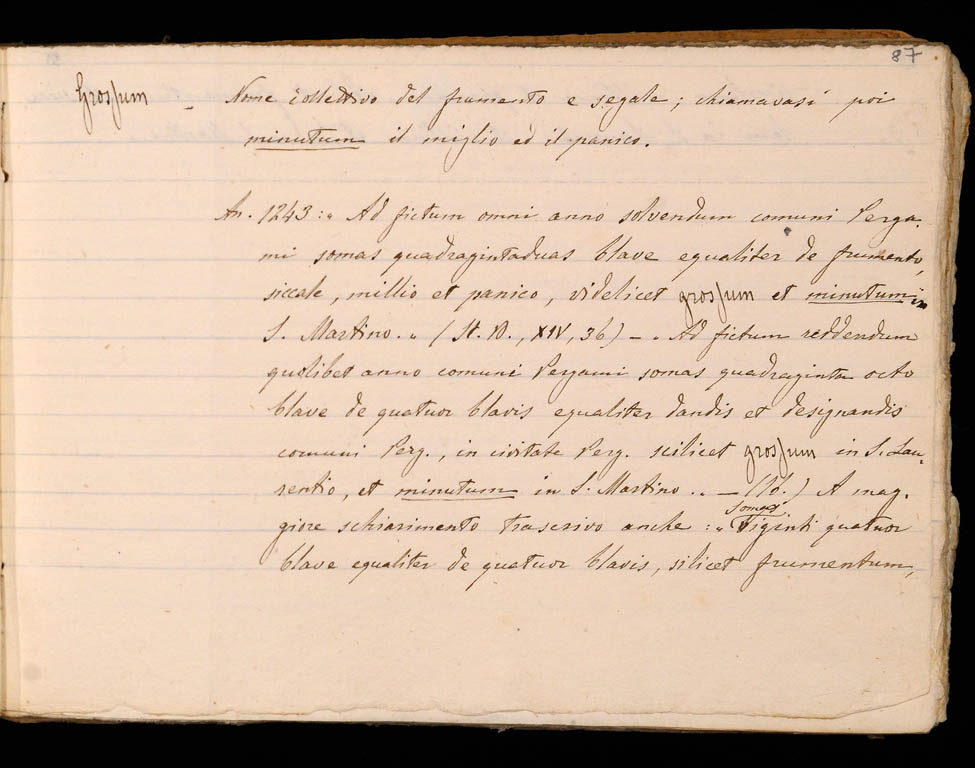 87
Grossum - Nome collettivo del frumento e segale; chiamavasi poi
minutum il miglio ed il panico.
An. 1243: „ Ad fictum omni anno solvendum comuni Perga-
mi somas quadragintaduas blave equaliter de frumento,
siccale, millio et panico, videlicet grossum et minutum in
S. Martino. „ (St. D., XIV, 36) - „ Ad fictum reddendum
quolibet anno comuni Pergami somas quadraginta octo
blave de quatuor blavis equaliter dandis et designandis
comuni Perg., in civitate Perg. scilicet grossum in S. Lau-
rentio, et minutum in S. Martino. „ - (Ib.) A mag-
giore schiarimento trascrivo anche: „ somas Viginti quatuor
blave equaliter de quatuor blavis, silicet frumentum,